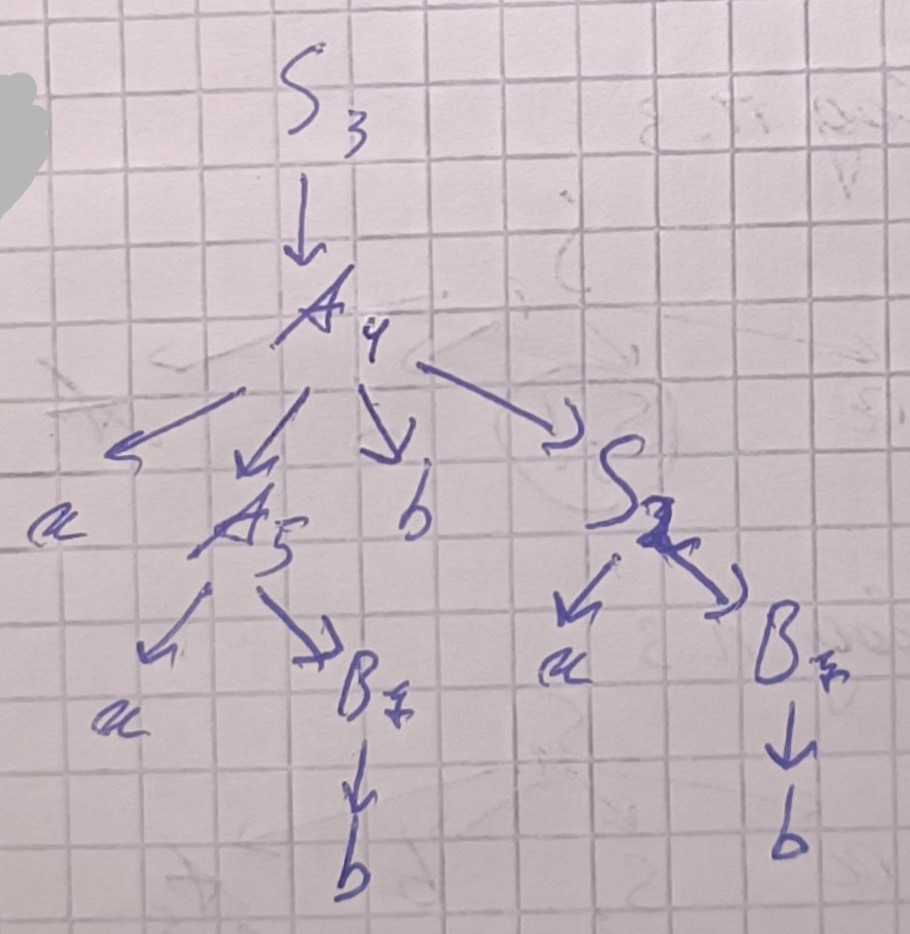 S 3
A 4
a A 5 b S 2
a B 7 a B 7
b b